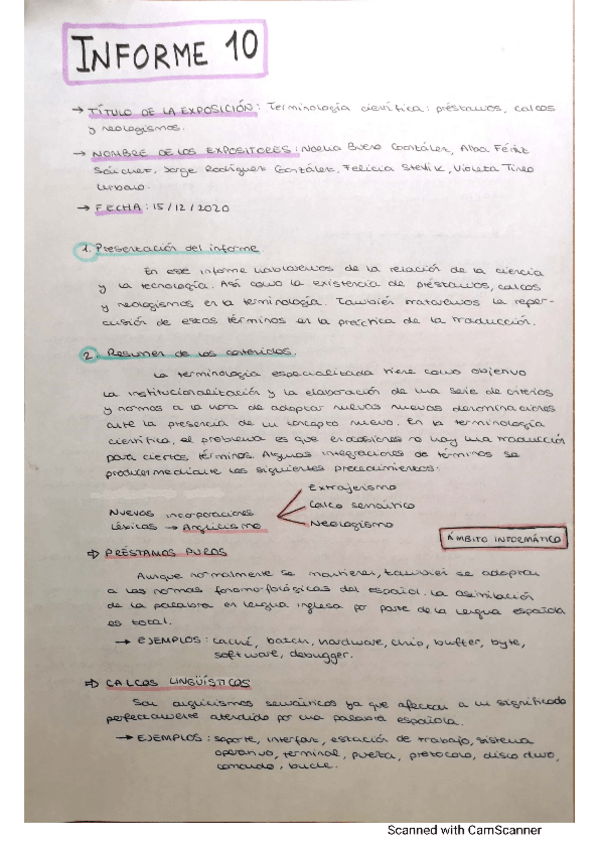 INFORME 10
→ TÍTULO DE LA EXPOSICIÓN: Terminología científica: préstamos, calcos
y neologismos.
→ NOMBRE DE LOS EXPOSITORES: Noelia Buero González, Alba Fériz
Sánchez, Jorge Rodríguez González, Felicia Stevik, Violeta Tineo
Urbano.
→ FECHA: 15/12/2020
1. Presentación del informe.
En ese informe hablaremos de la relación de la ciencia
y la tecnología. Así como la existencia de préstamos, calcos
y neologismos en la terminología. También trataremos la reper-
cusión de estos términos en la práctica de la traducción.
2. Resumen de los contenidos.
La terminología especializada tiene como objetivo
la institucionalización y la elaboración de una serie de criterios
y normas a la hora de adoptar nuevas nuevas denominaciones
ante la presencia de un concepto nuevo. En la terminología
científica, el problema es que en ocasiones no hay una traducción
para ciertos términos. Algunas integraciones de términos se
producen mediante los siguientes procedimientos:
Extrajerismo
Nuevas incorporaciones
Calco semántico
léxicas → Anglicismo
Neologismo
ÁMBITO INFORMÁTICO
⇒ PRÉSTAMOS PUROS
Aunque normalmente se mantienen, también se adaptan
a las normas fonomorfológicas del español. La asimilación
de la palabra en lengua inglesa por parte de la lengua española
es total.
→ EJEMPLOS: caché, batch, hardware, chip, buffer, byte,
software, debugger.
⇒ CALCOS LINGÜÍSTICOS
Son anglicismos semánticos ya que afectan a un significado
perfectamente atendido por una palabra española.
→ EJEMPLOS: soporte, interfaz, estación de trabajo, sistema
operativo, terminal, puerta, protocolo, disco duro,
comando, bucle.
Scanned with CamScanner